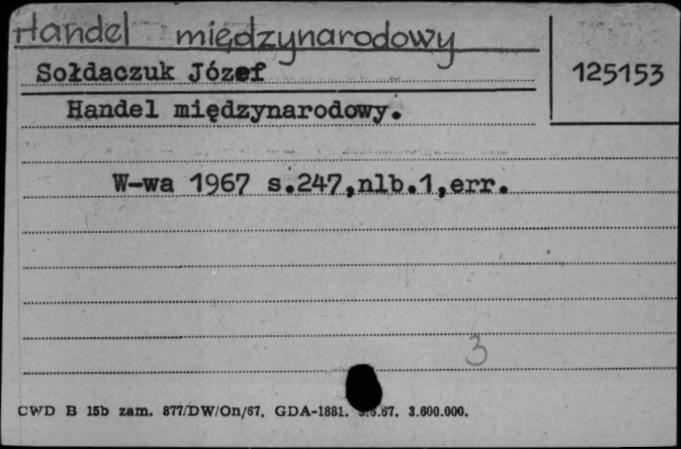 Handel międzynarodowy
Sołdaczuk Józef
125153
Handel międzynarodowy.
W-wa 1967 s.247,nlb.1,err.
3
CWD B 15b zam. 877/DW/On/67. GDA-1881. 3.600.000.